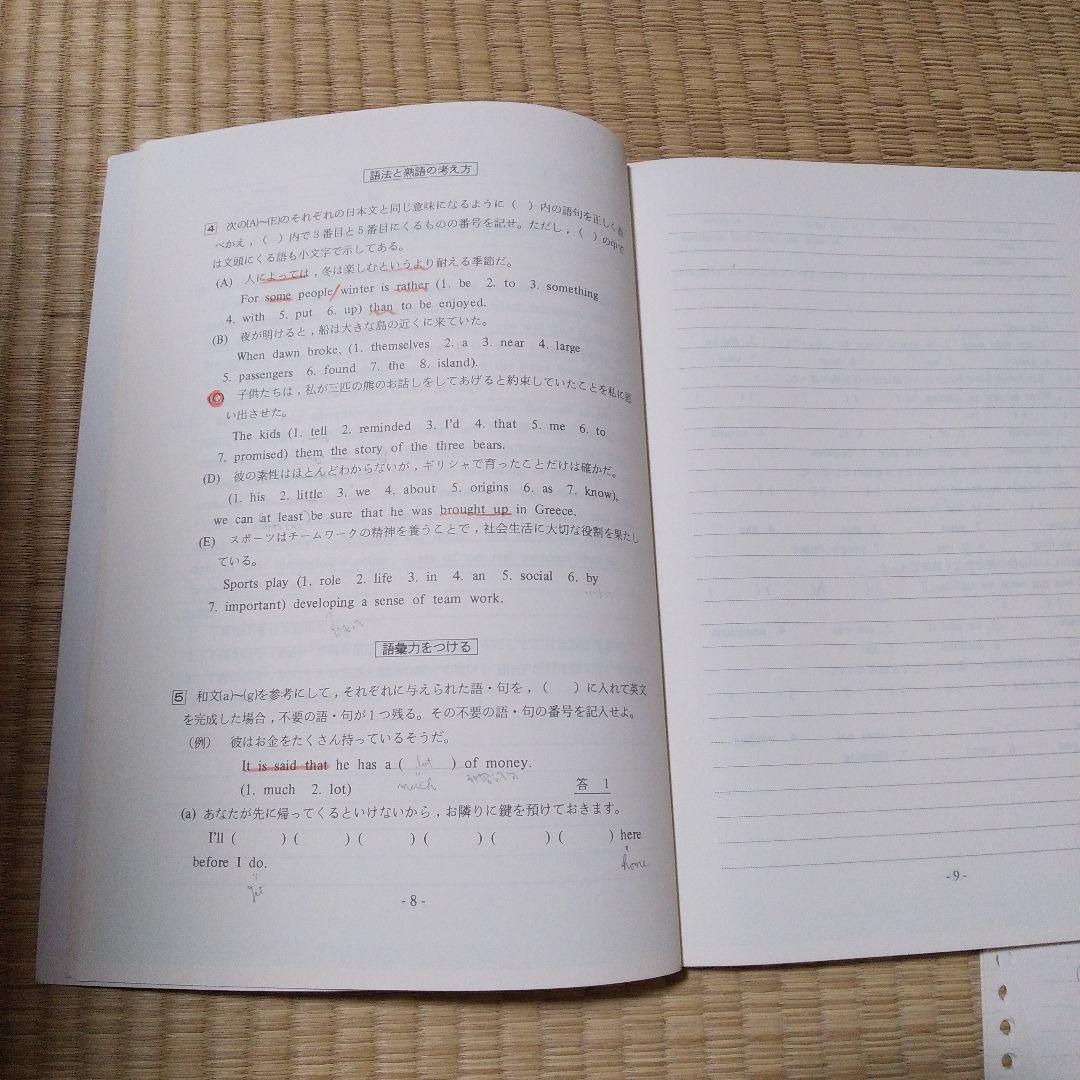 語法と熟語の考え方
4 次の(A)~(E)のそれぞれの日本文と同じ意味になるように( )内の語句を正しく並
べかえ,( )内で3番目と5番目にくるものの番号を記せ。ただし,( )の中で
は文頭にくる語も小文字で示してある。
(A) 人によっては,冬は楽しむというより耐える季節だ。
For some people/winter is rather (1. be 2. to 3. something
4. with 5. put 6. up) than to be enjoyed.
(B) 夜が明けると,船は大きな島の近くに来ていた。
When dawn broke, (1. themselves 2. a 3. near 4. large
5. passengers 6. found 7. the 8. island).
(C) 子供たちは,私が三匹の熊のお話しをしてあげると約束していたことを私に思
い出させた。
The kids (1. tell 2. reminded 3. I'd 4. that 5. me 6. to
7. promised) them the story of the three bears.
(D) 彼の素性はほとんどわからないが,ギリシャで育ったことだけは確かだ。
(1. his 2. little 3. we 4. about 5. origins 6. as 7. know),
we can (at least) be sure that he was brought up in Greece.
(E) スポーツはチームワークの精神を養うことで,社会生活に大切な役割を果たし
ている。
Sports play (1. role 2. life 3. in 4. an 5. social 6. by
7. important) developing a sense of team work.
語彙力をつける
5 和文(a)~(g)を参考にして,それぞれに与えられた語・句を,( )に入れて英文
を完成した場合,不要の語・句が1つ残る。その不要の語・句の番号を記入せよ。
(例) 彼はお金をたくさん持っているそうだ。
It is said that he has a ( lot ) of money.
(1. much 2. lot) much 答 1
(a) あなたが先に帰ってくるといけないから,お隣りに鍵を預けておきます。
I'll ( ) ( ) ( ) ( ) ( ) ( ) here
before I do. home
get
- 8 -
- 9 -